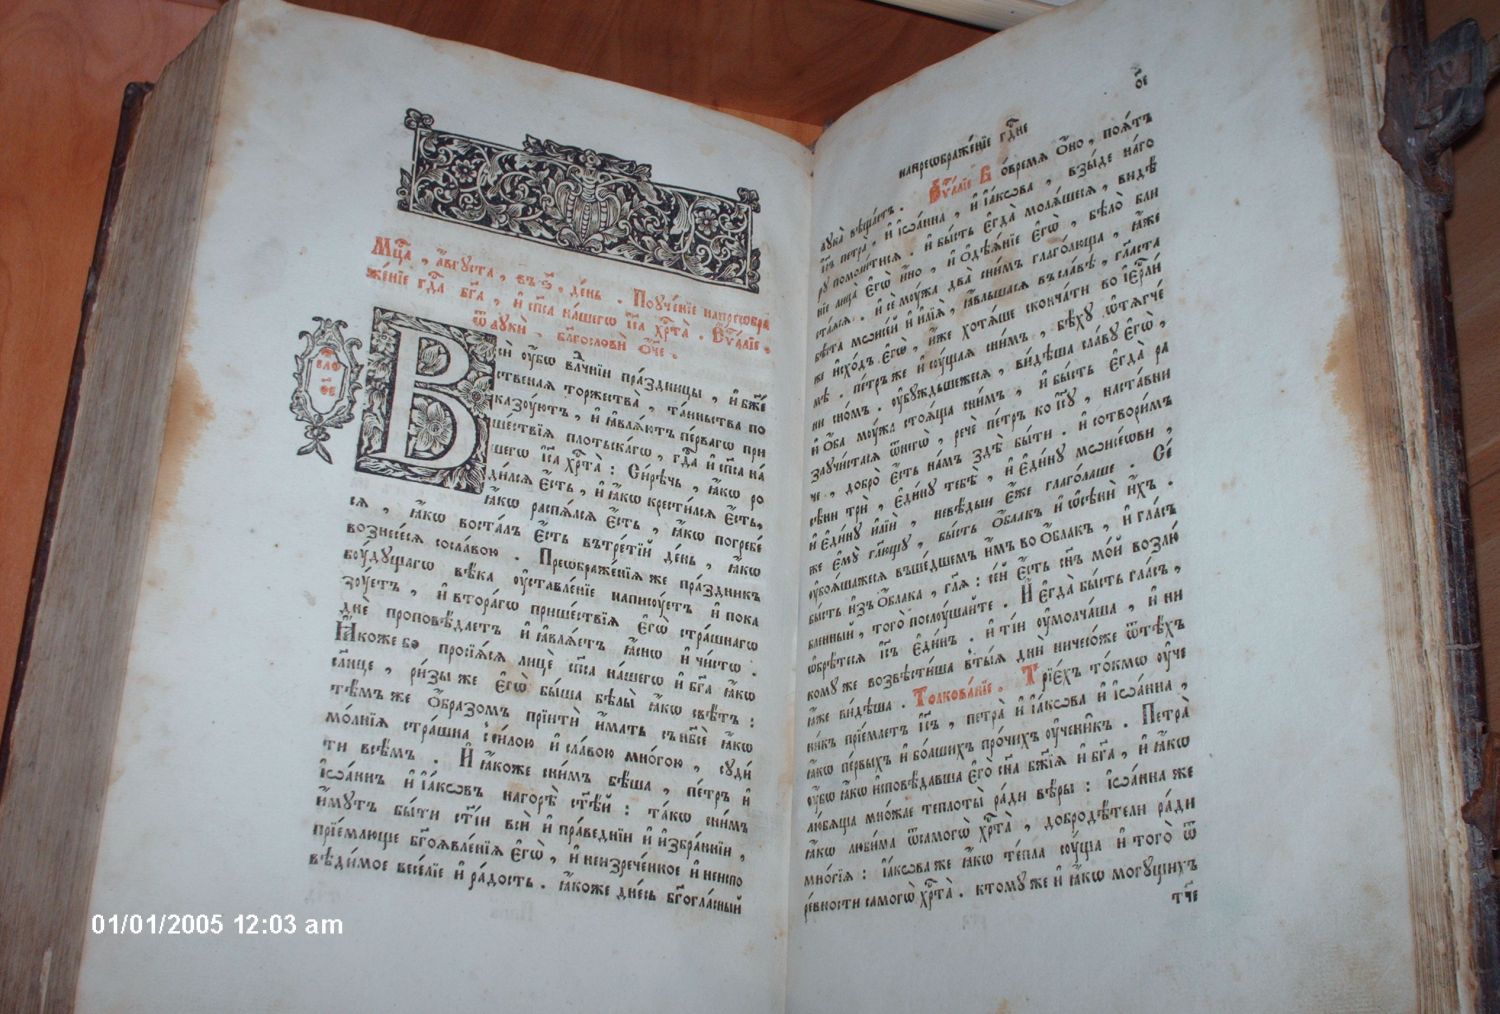 Мц҃а , а҆́вгꙋста , въ ѕ҃ , де́нь . Поꙋче́нїе напреѡбра
же́нїе гдⷭ҇а бг҃а , и҆ сп҃са на́шегѡ і҆с҃а хрⷭ҇та̀ . Є҆ѵⷢ҇алїе .
ѿ лꙋкѝ , блгⷭ҇ословѝ ѻ҆́ч҃е .
Всѝ ᲂу҆́бѡ вла́чнїи пра́здницы , и҆ бжⷭ҇е
ственая торжества̀ , та́иньства по
казꙋ́ютъ , и҆ ꙗ҆влѧ́ютъ пе́рвагѡ при
ше́ствїѧ пло́тьскагѡ , гдⷭ҇а и҆ сп҃са на́
шегѡ і҆с҃а хрⷭ҇та̀ : Си́рѣчь , ꙗ҆́кѡ ро
ди́лсѧ є҆́сть , и҆ ꙗ҆́кѡ крести́лсѧ є҆́сть ,
ꙗ҆́кѡ распѧ́лсѧ є҆́сть , ꙗ҆́кѡ погребе́
сѧ , ꙗ҆́кѡ воста́лъ є҆́сть втъре́тїй де́нь , ꙗ҆́кѡ
вознесе́сѧ сосла́вою . Преѡбраже́нїѧ же пра́здникъ
бꙋ́дꙋщагѡ вѣ́ка ᲂу҆ставле́нїе написꙋ́етъ и҆ пока
зꙋ́етъ , и҆ втора́гѡ прише́ствїѧ є҆гѡ̀ стра́шнагѡ
днѐ проповѣ́даетъ и҆ ꙗ҆влѧ́етъ ꙗ҆́снѡ и҆ чи́стѡ .
Ꙗ҆́коже бо просїѧ́сѧ лицѐ сп҃са на́шегѡ и҆ бг҃а ꙗ҆́кѡ
сл҃нце , ри́зы же є҆гѡ̀ бы́ша бѣлы̀ ꙗ҆́кѡ свѣ́тъ :
тѣ́мъ же ѻ҆́бразомъ прїитѝ и҆́мать сън҃бсѐ ꙗ҆́кѡ
мо́лнїѧ стра́шна ѕси́лою и҆ сла́вою мно́гою , сꙋди́
ти всѣ́мъ . И҆ ꙗ҆́коже сни́мъ бѣ́ша , пе́тръ и҆
і҆ѡа́ннъ и҆ і҆а́кѡвъ нагорѣ̀ ст҃ѣ́й : та́кѡ сни́мъ
и҆́мꙋтъ бы́ти ст҃і́и всѝ и҆ пра́веднїи и҆ и҆збра́ннїи ,
прїе́млюще бг҃оѧвле́нїѧ є҆гѡ̀ , и҆ неизрече́нное и҆ неиспо
вѣ́димое весе́лїе и҆ ра́дость . ꙗ҆́коже дне́сь бг҃огла́сный
напреѡбраже́нїе гдⷭ҇не
ѻ҃е
лꙋка̀ вѣща́етъ . Є҆ѵⷢ҇алїе В о́времѧ ѻ҆́но , поѧ́тъ
і҆с҃ъ петра̀ , и҆ і҆ѡа́нна , и҆ і҆а́кѡва , взы́де наго
рꙋ̀ помоли́тисѧ . и҆ бы́сть є҆гда̀ молѧ́шесѧ , видѣ́
нїе лица̀ є҆гѡ̀ и҆́но , и҆ ѻ҆дѣѧ́нїе є҆гѡ̀ , бѣлѡ̀ бли
ста́ѧсѧ . и҆ сѐ мꙋ́жа два̀ сни́мъ глаго́люща , ꙗ҆́же
бѣ́ста мѡисе́й и҆ и҆лїѧ̀ , ꙗ҆́вльшасѧ въсла́вѣ , гл҃аста
же и҆схо́дъ є҆гѡ̀ , и҆́же хотѧ́ше сконча́ти во і҆ерⷭ҇ли
мѣ . пе́тръ же и҆ сꙋ́щаѧ сни́мъ , бѣ́хꙋ ѡ҆тѧгче
ни сно́мъ . ᲂу҆бꙋ́ждьшесѧ , ви́дѣша сла́вꙋ є҆гѡ̀ ,
и҆ ѻ҆́ба мꙋ́жа стоѧ́ща сни́мъ , и҆ бы́сть є҆гда̀ ра
злꙋчи́стасѧ ѿнегѡ̀ , речѐ пе́тръ ко і҆с҃ꙋ , наста́вни
че , добро̀ є҆́сть на́мъ здѣ̀ бы́ти . и҆ сотвори́мъ
сѣ́ни трѝ , є҆ди́нꙋ тебѣ̀ , и҆ є҆ди́нꙋ мѡисе́ѡви ,
и҆ є҆ди́нꙋ и҆лїѝ , невѣ́дыи є҆́же глаго́лаше . Сѐ
же є҆мꙋ̀ гл҃ющꙋ , бы́сть ѻ҆́блакъ и҆ ѡ҆сѣнѝ и҆́хъ .
ᲂу҆боѧ́шажесѧ вше́дшемъ и҆́мъ во ѻ҆́блакъ , и҆ гла́съ
бы́сть и҆зъ ѻ҆́блака , гл҃ѧ : се́й є҆́сть сн҃ъ мо́й возлю́
бленный , того̀ послꙋ́шайте . И҆ є҆гда̀ бы́сть гла́съ ,
ѡ҆брѣ́тесѧ і҆с҃ъ є҆ди́нъ . и҆ ті́и ᲂу҆молча́ша , и҆ ни
комꙋ́ же возвѣсти́ша вты́ѧ днѝ ничесо́же ѿтѣ́хъ
ꙗ҆́же ви́дѣша . Толкова́нїе . Трїе́хъ то́кмѡ ᲂу҆че
ни́къ прїе́млетъ і҆с҃ъ , петра̀ и҆ і҆а́кѡва и҆ і҆ѡа́нна ,
ꙗ҆́кѡ пе́рвыхъ и҆ бо́лшихъ про́чихъ ᲂу҆чени́къ . Петра̀
ᲂу҆́бѡ ꙗ҆́кѡ и҆сповѣ́давша є҆го̀ сн҃а бж҃їѧ и҆ бг҃а , и҆ ꙗ҆́кѡ
лю́бѧща мно́жае теплоты̀ ра́ди вѣ́ры : і҆ѡа́нна же
ꙗ҆́кѡ люби́ма ѿсамогѡ̀ хрⷭ҇та̀ , добродѣ́тели ра́ди
мно́гїѧ : і҆а́кѡва же ꙗ҆́кѡ те́пла сꙋ́ща и҆ того̀ ѿ
ре́вности самогѡ̀ хрⷭ҇та̀ . ктомꙋ́ же и҆ ꙗ҆́кѡ могꙋ́щихъ
тч҃е
01/01/2005 12:03 am